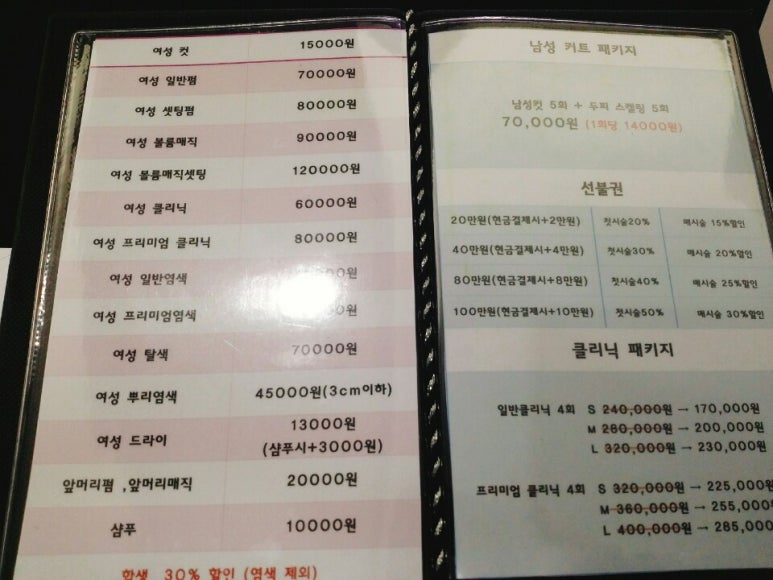 여성 컷 15000원
여성 일반펌 70000원
여성 셋팅펌 80000원
여성 볼륨매직 90000원
여성 볼륨매직셋팅 120000원
여성 클리닉 60000원
여성 프리미엄 클리닉 80000원
여성 일반염색
여성 프리미엄염색
여성 탈색 70000원
여성 뿌리염색 45000원(3cm이하)
여성 드라이 13000원
(샴푸시+3000원)
앞머리펌 ,앞머리매직 20000원
샴푸 10000원
학생 30% 할인 (염색 제외)
남성 커트 패키지
남성컷 5회 + 두피 스켈링 5회
70,000원 (1회당 14000원)
선불권
20만원(현금결제시+2만원) 첫시술20% 매시술 15%할인
40만원(현금결제시+4만원) 첫시술30% 매시술 20%할인
80만원(현금결제시+8만원) 첫시술40% 매시술 25%할인
100만원(현금결제시+10만원) 첫시술50% 매시술 30%할인
클리닉 패키지
일반클리닉 4회 S 240,000원 → 170,000원
M 260,000원 → 200,000원
L 320,000원 → 230,000원
프리미엄 클리닉 4회 S 320,000원 → 225,000원
M 360,000원 → 255,000원
L 400,000원 → 285,000원